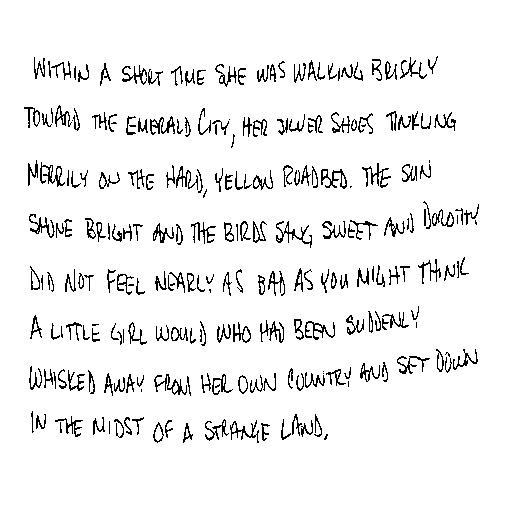 WITHIN A SHORT TIME SHE WAS WALKING BRISKLY
TOWARD THE EMERALD CITY, HER SILVER SHOES TINKLING
MERRILY ON THE HARD, YELLOW ROADBED. THE SUN
SHONE BRIGHT AND THE BIRDS SANG SWEET AND DOROTHY
DID NOT FEEL NEARLY AS BAD AS YOU MIGHT THINK
A LITTLE GIRL WOULD WHO HAD BEEN SUDDENLY
WHISKED AWAY FROM HER OWN COUNTRY AND SET DOWN
IN THE MIDST OF A STRANGE LAND.